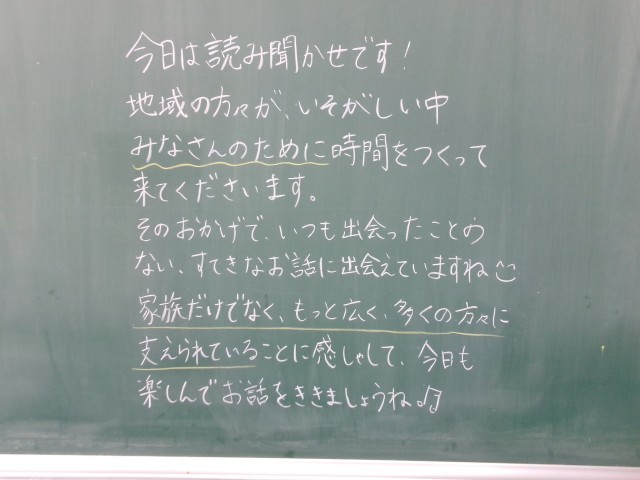 今日は読み聞かせです!
地域の方々が、いそがしい中
みなさんのために時間をつくって
来てくださいます。
そのおかげで、いつも出会ったことの
ない、すてきなお話に出会えていますね
家族だけでなく、もっと広く、多くの方々に
支えられていることに感しゃして、今日も
楽しんでお話をききましょうね♫